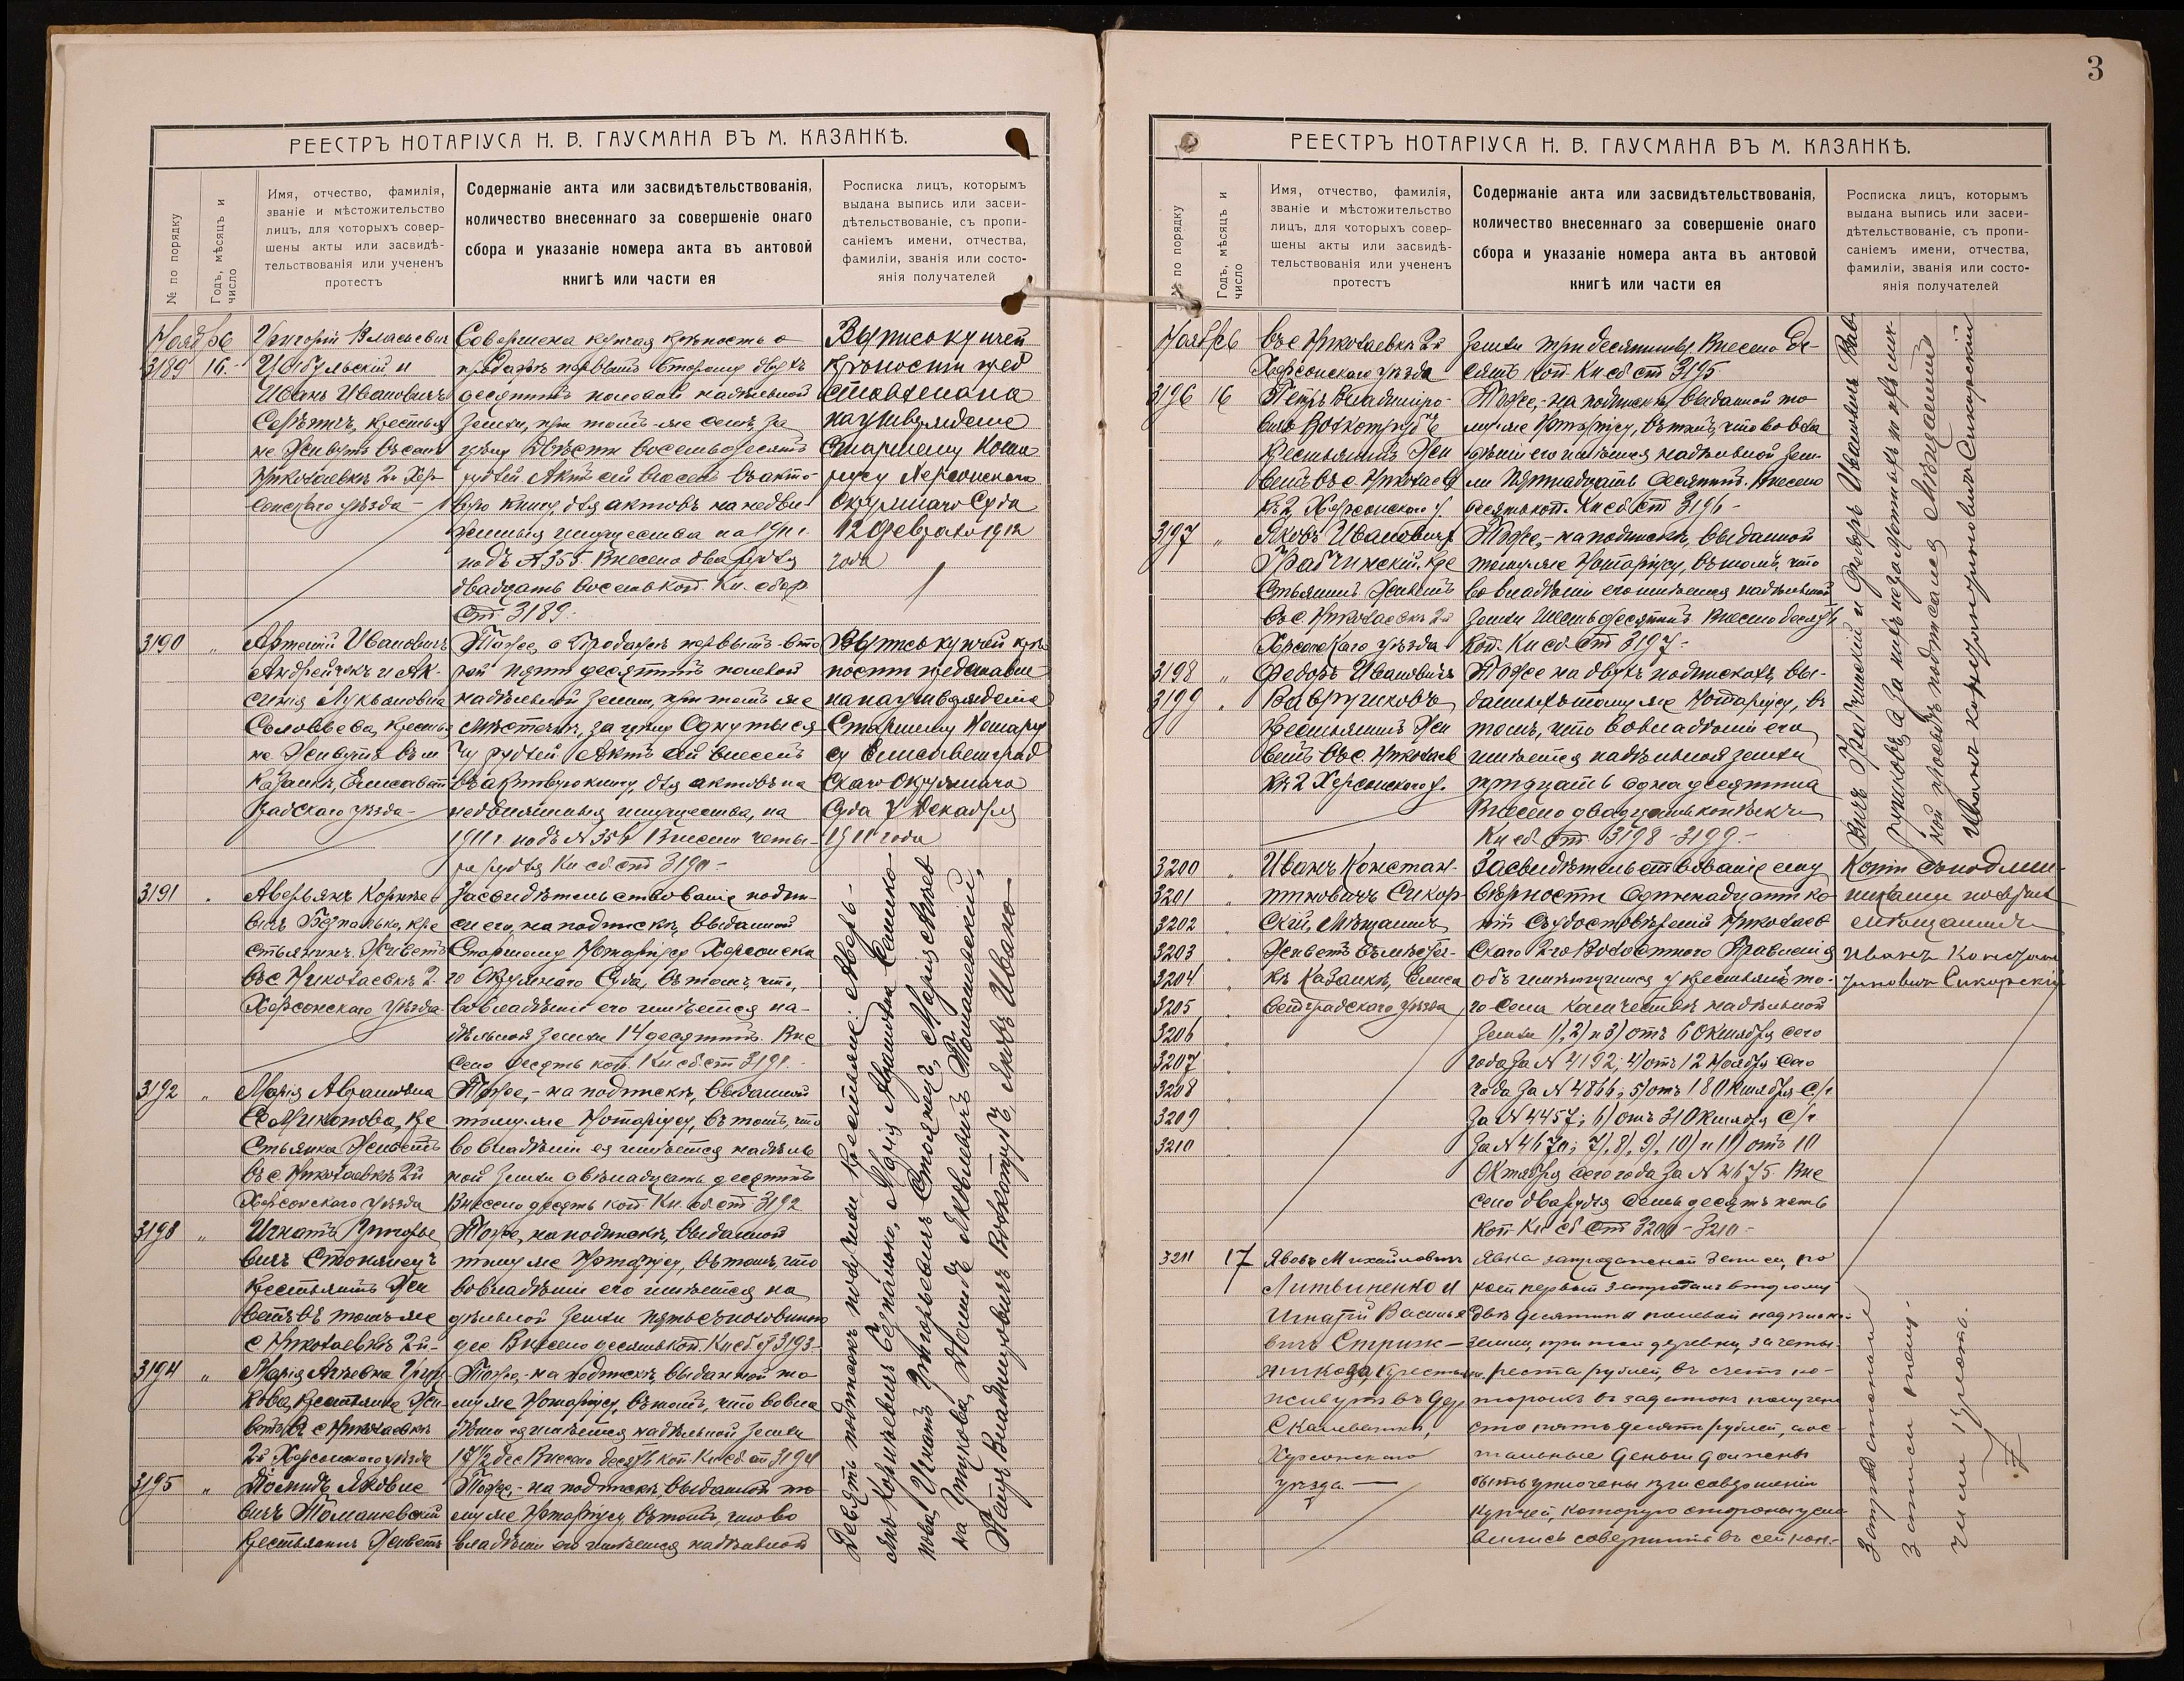 РЕЕСТРЪ НОТАРІУСА Н. В. ГАУСМАНА ВЪ М. КАЗАНКѢ.
№ по порядку
Годъ, мѣсяцъ и
число
Имя, отчество, фамилія,
званіе и мѣстожительство
лицъ, для которыхъ совер-
шены акты или засвидѣ-
тельствованія или учененъ
протестъ
Содержаніе акта или засвидѣтельствованія,
количество внесеннаго за совершеніе онаго
сбора и указаніе номера акта въ актовой
книгѣ или части ея
Росписка лицъ, которымъ
выдана выпись или засви-
дѣтельствованіе, съ пропи-
саніемъ имени, отчества,
фамиліи, званія или состо-
янія получателей
Ноября
3189 16.
Григорій Власьевичъ
Цыбульскій и
Иванъ Ивановичъ
крестья
не Живутъ въ селѣ
Николаевкѣ 2й Хер
сонскаго уѣзда
Совершена купчая крѣпость о
продажѣ первымъ второму двухъ
десятинъ полевой надѣльной
земли, при томъ-же селѣ, за
цѣну двѣсти восемьдесятъ
рублей Актъ сей внесенъ въ акто-
вую книгу для актовъ на недви
жимыя имущества на 1911 г.
подъ № 355. Внесено два рубля
двадцать восемь коп. Кн. сбор
ст. 3189.
Выпись купчей
крѣпости пред
ставлена
на утвержденіе
Старшему Нота
ріусу Херсонскаго
Окружнаго Суда
12 февраля 1912
года
3190 "
Артемій Ивановичъ
Андрейчикъ и Ак-
синія Лукьяновна
Соловьева, крестья
не Живутъ въ м
Казанкѣ, Елисавет
градскаго уѣзда
Тоже, о продажѣ первымъ вто
рой пяти десятинъ полевой
надѣльной земли, при томъ же
мѣстечкѣ, за цѣну одну тыся
чу рублей Актъ сей внесенъ
въ актовую книгу для актовъ на
недвижимыя имущества, на
1911 г. подъ № 356 Внесено четы-
ре рубля Кн сб. ст 3190
Выпись купчей крѣ
пости представле
на на утвержденіе
Старшему Нотаріу
су Елисаветград
скаго Окружнаго
Суда 7 Декабря
1911 года
3191
Аверьянъ Корнѣе
вичъ Безпалько, кре
стьянинъ. Живетъ
въ с Николаевкѣ 2-
Херсонскаго уѣзда
Засвидѣтельствованіе подпи-
си его, на подпискѣ, выданной
Старшему Нотаріусу Херсонска
го Окружнаго Суда, въ томъ, что,
во владѣніи его имѣется на-
дѣльной земли 14 десятинъ. Вне
сено десять коп. Кн. сб. ст 3191.
3192 "
Марія Абрамовна
крестьянка Живетъ
въ с Николаевкѣ 2й
Херсонскаго уѣзда
Тоже,- на подпискѣ, выданной
тому-же Нотаріусу, въ томъ, что
во владѣніи ея имѣется надѣль
ной земли двѣнадцать десятинъ
Внесено десять коп. Кн. сб. ст 3192
3193 "
Игнатъ Григорье
вичъ Стоянецъ
крестьянинъ Жи
ветъ въ томъ же
с Николаевкѣ 2й-
Тоже, на подпискѣ, выданной
тому же Нотаріусу, въ томъ, что
во владѣніи его имѣется на
дѣльной земли пять съ половиною
дес Внесено десять коп. Кн сб. ст 3193-
3194 "
Марія Агѣевна
крестьянка Жи-
ветъ въ с Николаевкѣ
2й Херсонскаго уѣзда
Тоже,- на подпискѣ, выданной то
му же Нотаріусу, въ томъ, что во вла
дѣніи ея имѣется надѣльной земли
17½ дес Внесено десять коп Кн сб. ст 3194
3195 "
Діомидъ Яковле
вичъ Томашевскій
крестьянинъ Живетъ
Тоже,- на подпискѣ, выданной то
му же Нотаріусу, въ томъ, что во
владѣніи его имѣется надѣльной
Девять подписокъ получили крестьяне: Аверь-
янъ Корнѣевичъ Безпалько, Марія Абрамовна
Игнатъ Григорьевичъ Стоянецъ, Марія Агѣев
на Діомидъ Яковлевичъ Томашевскій,
Петръ Владиміровичъ Волкотрубъ, Яковъ Ивано-
3
РЕЕСТРЪ НОТАРІУСА Н. В. ГАУСМАНА ВЪ М. КАЗАНКѢ.
№ по порядку
Годъ, мѣсяцъ и
число
Имя, отчество, фамилія,
званіе и мѣстожительство
лицъ, для которыхъ совер-
шены акты или засвидѣ-
тельствованія или учененъ
протестъ
Содержаніе акта или засвидѣтельствованія,
количество внесеннаго за совершеніе онаго
сбора и указаніе номера акта въ актовой
книгѣ или части ея
Росписка лицъ, которымъ
выдана выпись или засви-
дѣтельствованіе, съ пропи-
саніемъ имени, отчества,
фамиліи, званія или состо-
янія получателей
Ноября
въ с Николаевкѣ 2й
Херсонскаго уѣзда
земли три десятины Внесено де-
сять коп. Кн сб ст 3195
3196 16
Петръ Владиміро-
вичъ Волкотрубъ
крестьянинъ Жи
ветъ въ с. Николаев
кѣ 2, Херсонскаго у.
Тоже,- на подпискѣ, выданной то
му же Нотаріусу, въ томъ, что во вла
дѣніи его имѣется надѣльной зем
ли пятнадцать десятинъ. Внесено
десять коп. Кн сб ст 3196 -
3197 "
Яковъ Ивановичъ
Грабчинскій, кре
стьянинъ Живетъ
въ с. Николаевкѣ 2й
Херсонскаго уѣзда
Тоже,- на подпискѣ, выданной
тому же Нотаріусу, въ томъ, что
во владѣніи его имѣется надѣльной
земли шесть десятинъ Внесено десять
коп. Кн сб ст 3197 -
3198 "
3199 "
Федоръ Ивановичъ
Ваврушковъ
крестьянинъ Жи
ветъ въ с. Николаев
кѣ 2 Херсонскаго у.
Тоже на двухъ подпискахъ, вы-
данныхъ тому же Нотаріусу, въ
томъ, что во владѣніи его
имѣется надѣльной земли
тридцать одна десятина
Внесено двадцать копѣекъ
Кн сб. ст. 3198-3199.-
вичъ Грабчинскій и Федоръ Ивановичъ Вав-
рушковъ, а за нихъ неграмотныхъ и по ихъ лич-
ной просьбѣ подписался Мѣщанинъ
Иванъ Константиновичъ Сикорскій
3200
3201
3202
3203
3204
3205
3206
3207
3208
3209
3210
Иванъ Констан-
тиновичъ Сикор
скій, Мѣщанинъ
Живетъ въ мѣстеч-
кѣ Казанкѣ, Елиса
ветградскаго уѣзда
Засвидѣтельствованіе ему
вѣрности одиннадцати ко
пій съ удостовѣреній Николаев
скаго 2го Волостного Правленія
объ имѣющемся у крестьянъ то-
го села количествѣ надѣльной
земли 1), 2) и 3) отъ 6 Октября сего
года за № 4192; 4) отъ 12 Ноября сего
года за № 4866; 5) отъ 18 Октября с/г
за № 4457; 6) отъ 31 Октября с/г
за № 4670; 7), 8), 9), 10) и 11) отъ 10
Октября сего года за № 4675 Вне
сено два рубля семьдесятъ пять
коп Кн сб ст 3200-3210-
Копіи съ подлин-
никами получилъ
Мѣщанинъ
Иванъ Констан
тиновичъ Сикорскій
3211 17
Яковъ Михайловичъ
Литвиненко и
Игнатій Василье
вичъ Стриж-
крестьяне
живутъ въ дер
Скалеваткѣ,
Херсонскаго
уѣзда.
Явка запродажной записи, по
коей первый запродалъ второму
двѣ десятины полевой надѣльной
земли, при той деревнѣ, за четы-
реста рублей, въ счетъ ко-
торыхъ въ задатокъ получено
сто пятьдесятъ рублей, а ос-
тальныя деньги должны
быть уплочены при совершеніи
купчей, которую стороны усло
вились совершить въ сей кон-
Запродажной
записи полу-
чили